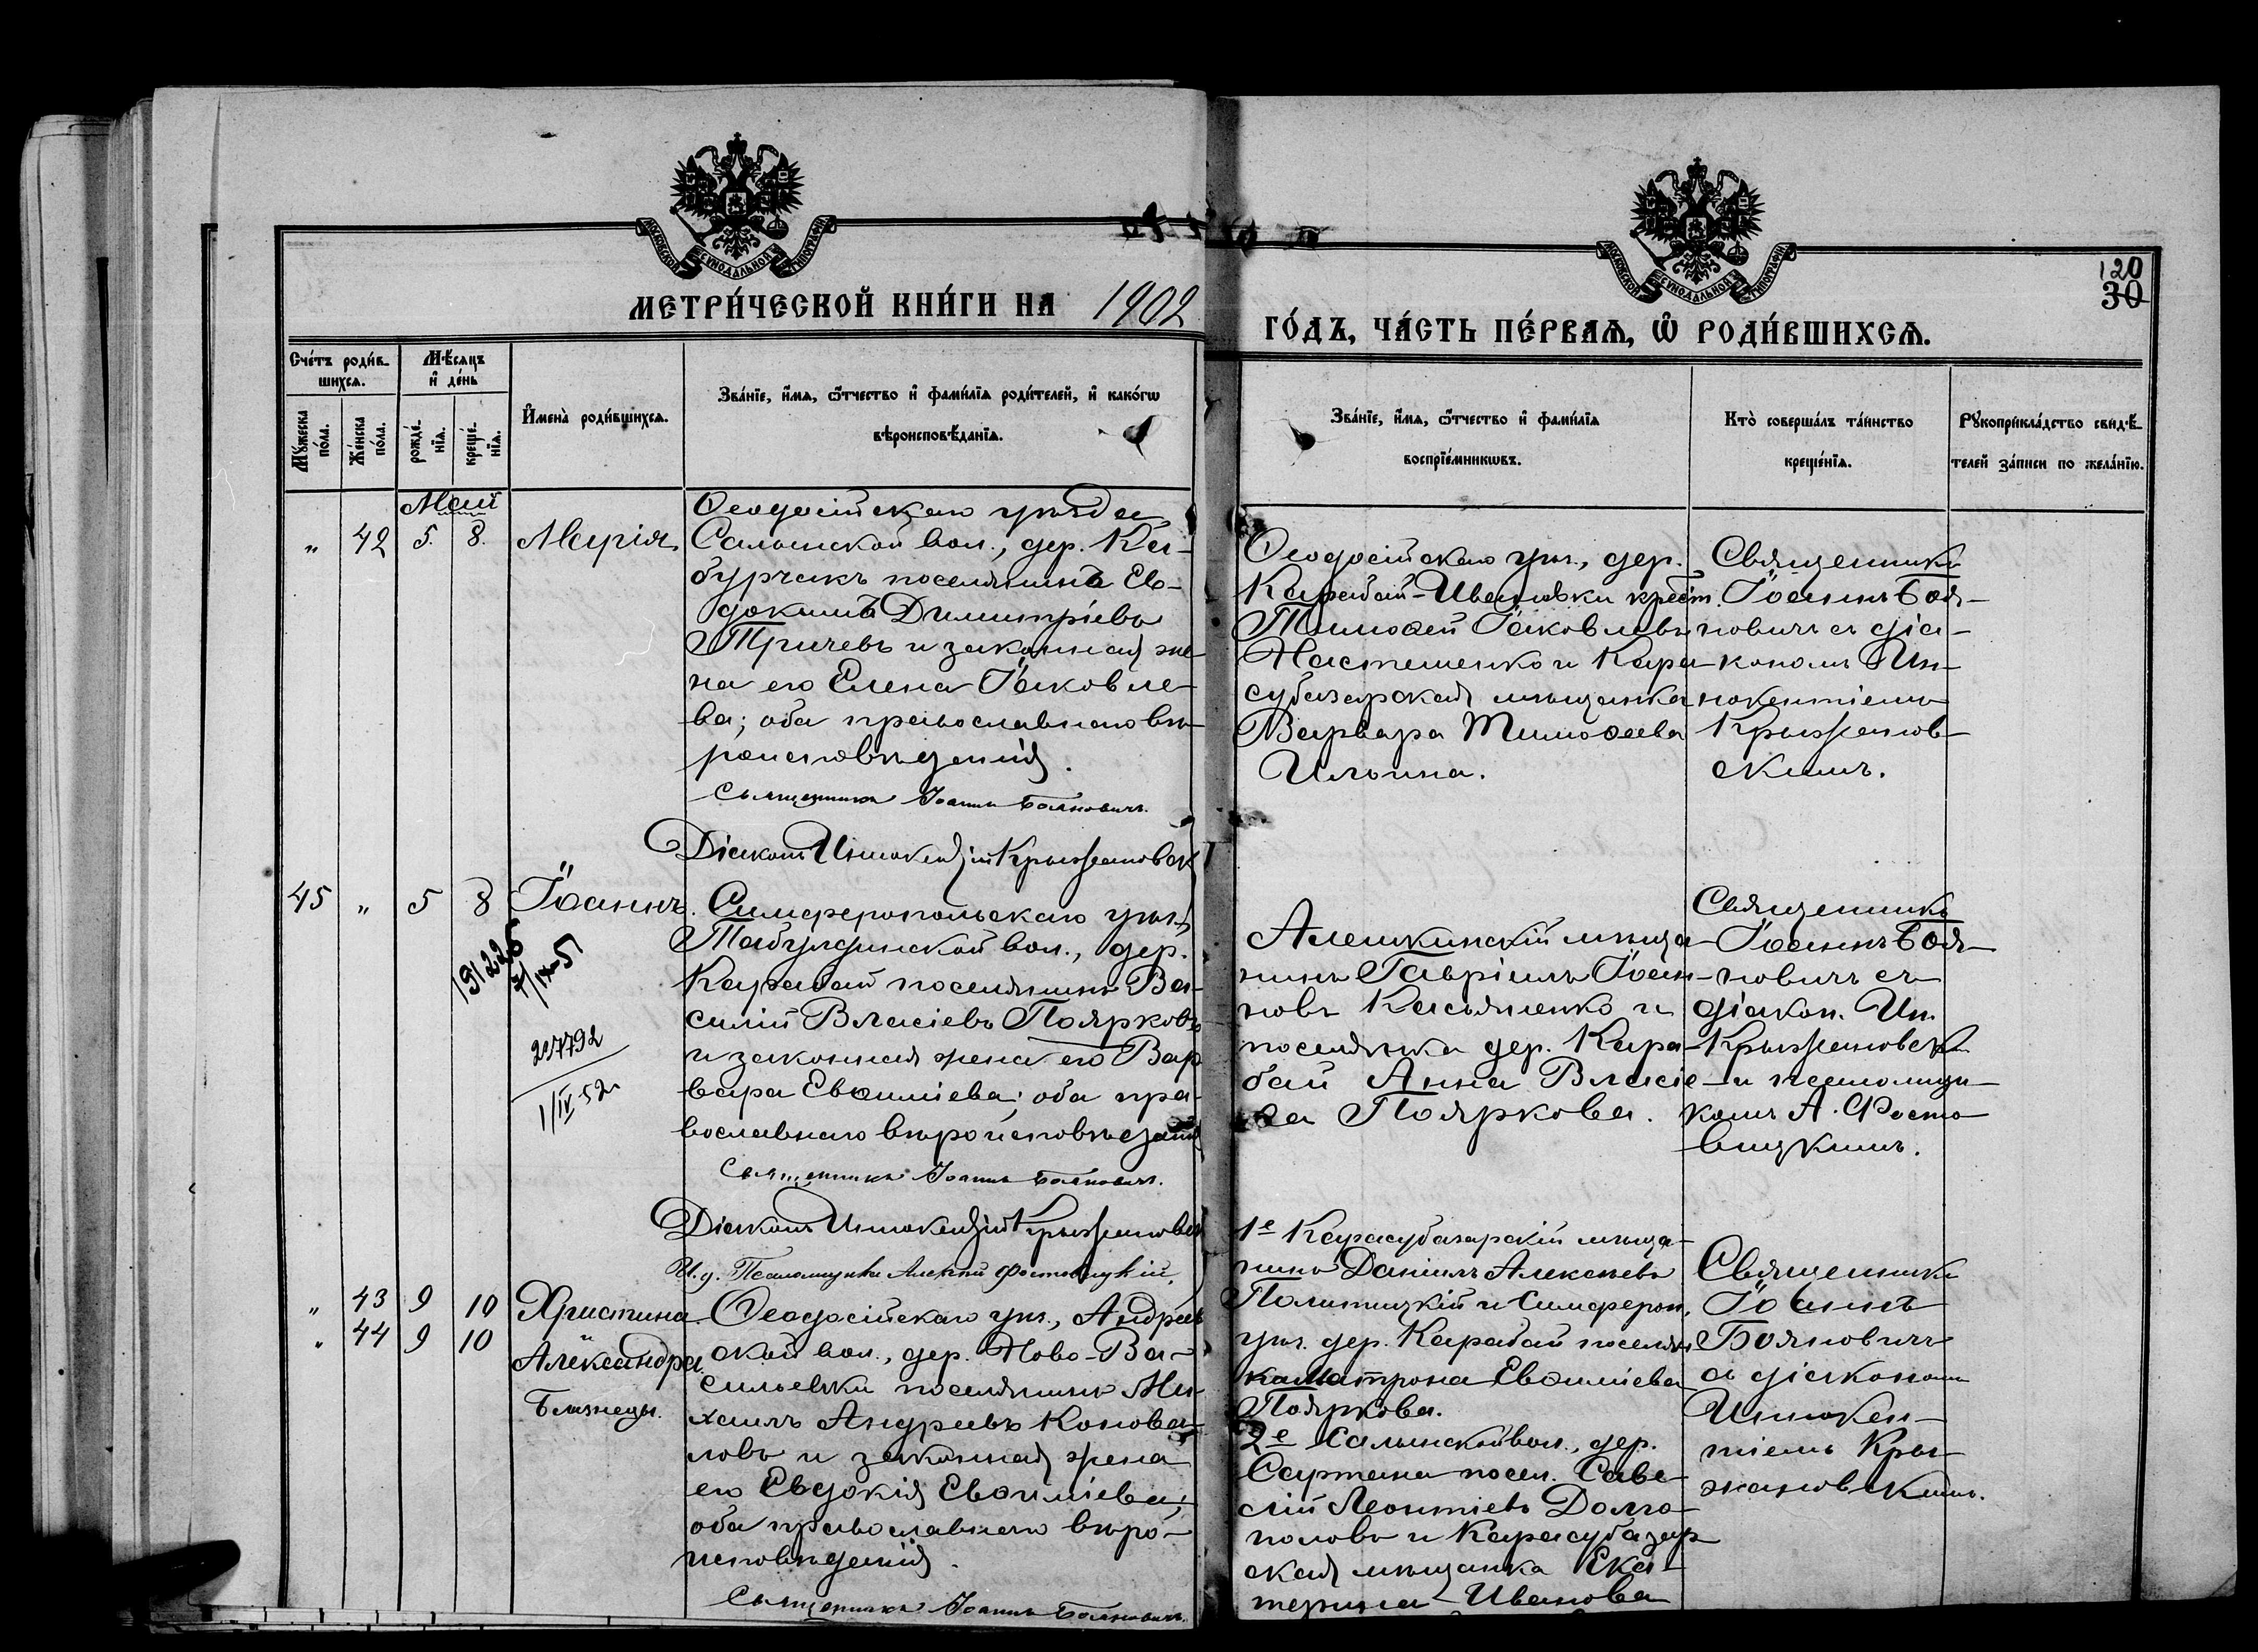 МЕТРИ́ЧЕСКОЙ КНИ́ГИ НА 1902
ГО́ДЪ, ЧА́СТЬ ПЕ́РВАѦ, Ѡ҆ РОДИ́ВШИХСѦ.
120
30
Сче́тъ роди́в-
шихсѧ.
Мѣ́сѧцъ
и҆ де́нь
Мꙋ́жеска
по́ла.
Же́нска
по́ла.
рожде́-
нїѧ.
креще́-
нїѧ.
И҆мена̀ роди́вшихсѧ.
Зва́нїе, и҆́мѧ, ѻ҆́тчество и҆ фами́лїѧ роди́телей, и҆ како́гѡ
вѣроисповѣ́данїѧ.
Зва́нїе, и҆́мѧ, ѻ҆́тчество и҆ фами́лїѧ
воспрїе́мникѡвъ.
Кто̀ соверша́лъ та́инство
креще́нїѧ.
Рꙋкоприкла́дство свидѣ́-
телей за́писи по жела́нїю.
Май
„ 42 5. 8. Марія.
Ѳеодосійскаго уѣзда
Салынской вол., дер. Ка-
бурчакъ поселянинъ Ев-
докимъ Димитріевъ
Тричевъ и законная же
на его Елена Іаковле-
ва; оба православнаго вѣ-
роисповѣданія.
Священникъ Іоаннъ Бояновичъ.
Діаконъ Иннокентій Крыжановск
Ѳеодосійскаго уѣз., дер.
Карабай-Ивановки крест.
Тимоѳей Іаковлевъ
Настешенко и Кара-
субазарская мѣщанка
Варвара Тимоѳеева
Ильина.
Священникъ
Іоаннъ Боя-
новичъ съ діа-
кономъ Ин-
нокентіемъ
Крыжанов-
скимъ.
45 „ 5 8 Іоаннъ.
191226
7/IX-51
207792
1/IV 52
Симферопольскаго уѣз.
Табулдинской вол., дер.
Карабай поселянинъ Ва-
силій Власіевъ Поярковъ
и законная жена его Вар
вара Евѳиміева; оба пра-
вославнаго вѣроисповѣданія
Священникъ Іоаннъ Бояновичъ.
Діаконъ Иннокентій Крыжановск
И.д. Псаломщика Алексій Фостовицкій.
Алешкинскій мѣща-
нинъ Гавріилъ Іоан-
новъ Касьяненко и
поселянка дер. Кара-
бай Анна Власіе-
ва Пояркова.
Священникъ
Іоаннъ Боя-
новичъ съ
діакон. Ин.
Крыжановск.
и псаломщи-
комъ А. Фосто
вицкимъ.
„ 43 9 10 Христина
„ 44 9 10 Александра.
Близнецы.
Ѳеодосійскаго уѣз., Андреев
ской вол., дер. Ново-Ва-
сильевки поселянинъ Ми-
хаилъ Андреевъ Конова-
ловъ и законная жена
его Евдокія Евѳиміева;
оба православнаго вѣро-
исповѣданія.
Священникъ Іоаннъ Бояновичъ.
1е Карасубазарскій мѣща-
нинъ Даніилъ Алексѣевъ
Политицкій и Симфероп.
уѣз. дер. Карабай поселян
ка Матрона Евѳиміева
Пояркова.
2е Салынской вол., дер.
Сартана посел. Саве-
лій Леонтіевъ Долго-
половъ и Карасубазар
ская мѣщанка Ека-
терина Иванова
Священникъ
Іоаннъ
Бояновичъ
съ діакономъ
Иннокен-
тіемъ Кры-
жановскимъ.